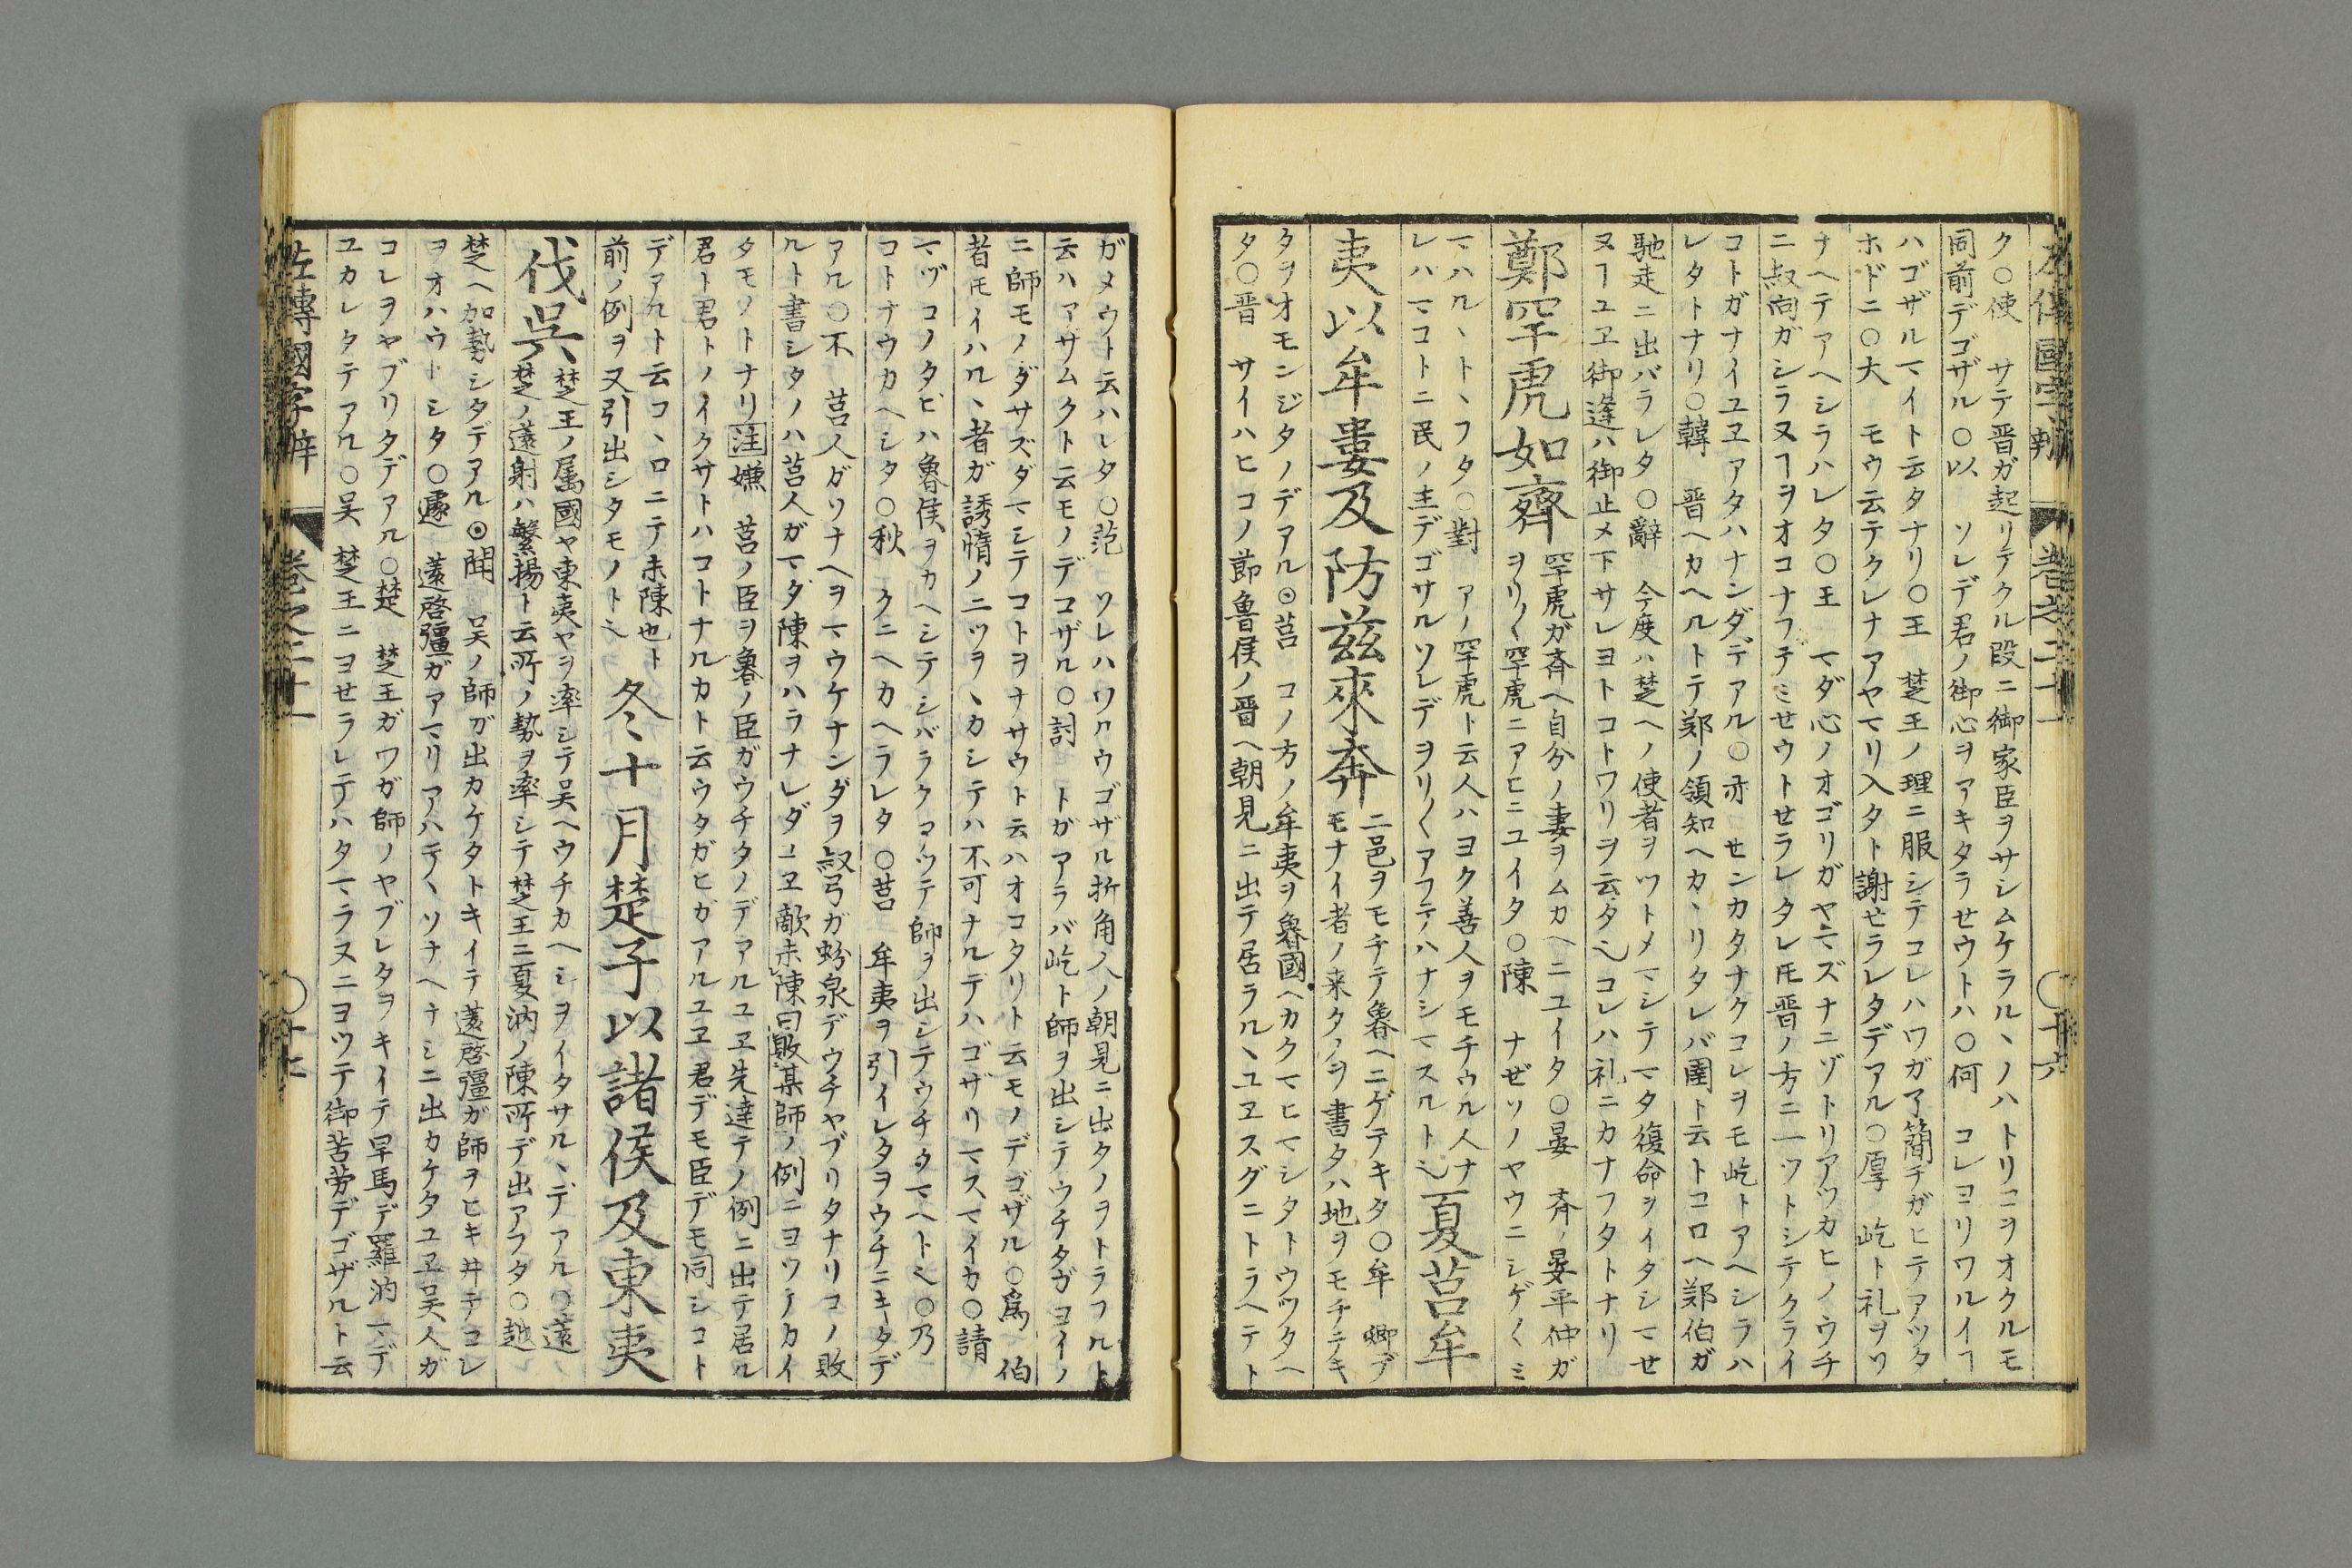 左傳國字辨　巻之二十一　〇十六
ク〇使　サテ晋ガ起リテクル段ニ御家臣ヲサシムケラル丶ノハトリニヲオクルモ
同前デゴザル〇以　ソレデ君ノ御心ヲアキタラせウトハ〇何　コレヨリワルイヿ
ハゴザルマイト云タナリ〇王　楚王ノ理ニ服シテコレハワガ了簡チガヒテアツタ
ホドニ〇大　モウ云テクレナアヤマリ入タト謝せラレタデアル〇厚　屹ト礼ヲソ
ナヘテアヘシラハレタ〇王　マダ心ノオゴリガヤマズナニゾトリアツカヒノウチ
ニ叔向ガシラヌヿヲオコナフテミせウトせラレタレ𪜈晋ノ方ニ一ツトシテクライ
コトガナイユヱアタハナンダデアル〇亦　せンカタナクコレヲモ屹トアヘシラハ
レタトナリ〇韓　晋ヘカヘルトテ郑ノ領知ヘカ丶リタレバ圉ト云トコロヘ郑伯ガ
馳走ニ出バラレタ〇辭　今度ハ楚ヘノ使者ヲツトメマシテマタ復命ヲイタシマせ
ヌヿユヱ御逢ハ御止メ下サレヨトコトワリヲ云タ也コレハ礼ニカナフタトナリ
鄭罕虎如齊
罕虎ガ斉ヘ自分ノ妻ヲムカヘニユイタ〇晏　斉ノ晏平仲ガ
ヲリ〱罕虎ニアヒニユイタ〇陳　ナゼソノヤウニシゲ〱ミ
マハル丶ト丶フタ〇對　アノ罕虎ト云人ハヨク善人ヲモチウル人ナ
レハマコトニ民ノ主デゴサルソレデヲリ〱アフテハナシマスルト也
夏莒牟
夷以牟婁及防茲來奔
二邑ヲモチテ魯ヘニゲテキタ〇牟　卿デ
モナイ者ノ来タノヲ書タハ地ヲモチテキ
タヲオモンジタノデアル⊙莒　コノ方ノ牟夷ヲ魯國ヘカクマヒマシタトウツタヘ
タ〇晋　サイハヒコノ節魯侯ノ晋ヘ朝見ニ出テ居ラル丶ユヱスグニトラヘテト
ガメウト云ハレタ〇范　ソレハワロウゴザル折角人ノ朝見ニ出タノヲトラフルト
云ハアサムクト云モノデコザル〇討　トガアラバ屹ト師ヲ出シテウチタガヨイノ
ニ師モノダサズダマシテコトヲナサウト云ハオコタリト云モノデゴザル〇為　伯
者𪜈イハル丶者ガ誘惰ノ二ツヲ丶カシテハ不可ナルデハゴザリマスマイカ〇請
マヅコノタビハ魯侯ヲカヘシテシバラクマツテ師ヲ出シテウチタマヘト也〇乃
コトナウカヘシタ〇秋　クニヘカヘラレタ〇莒　牟夷ヲ引イレタヲウチニキタデ
アル〇不　莒人ガソナヘヲマウケナンダヲ叔弓ガ蚡泉デウチヤブリタナリコノ敗
ルト書シタノハ莒人ガマダ陳ヲハラナレダユヱ敵未陳曰敗某師ノ例ニヨツテカイ
タモノトナリ注嫌　莒ノ臣ヲ魯ノ臣ガウチタノデアルユヱ先達テノ例ニ出テ居ル
君ト君トノイクサトハコトナルカト云ウタガヒガアルユヱ君デモ臣デモ同シコト
デアルト云コ丶ロニテ未陳也ト
前ノ例ヲ又引出シタモノト也
冬十月楚子以諸侯及東夷
伐呉
楚王ノ属國ヤ東夷ヤヲ率シテ吴ヘウチカヘシヲイタサル丶デアル〇薳
楚ノ薳射ハ繁揚ト云所ノ勢ヲ率シテ楚王ニ夏汭ノ陳所デ出アフタ〇越
楚ヘ加勢シタデアル⊙聞　吴ノ師ガ出カケタトキイテ薳啓彊ガ師ヲヒキ井テコレ
ヲオハウトシタ〇遽　薳啓彊ガアマリアハテ丶ソナヘナシニ出カケタユヱ吴人ガ
コレヲヤブリタデアル〇楚　楚王ガワガ師ノヤブレタヲキイテ早馬デ羅汭マデ
ユカレタテアル〇吴　楚王ニヨせラレテハタマラヌニヨツテ御苦労デゴザルト云
左傳國字辨　巻之二十一　〇十七